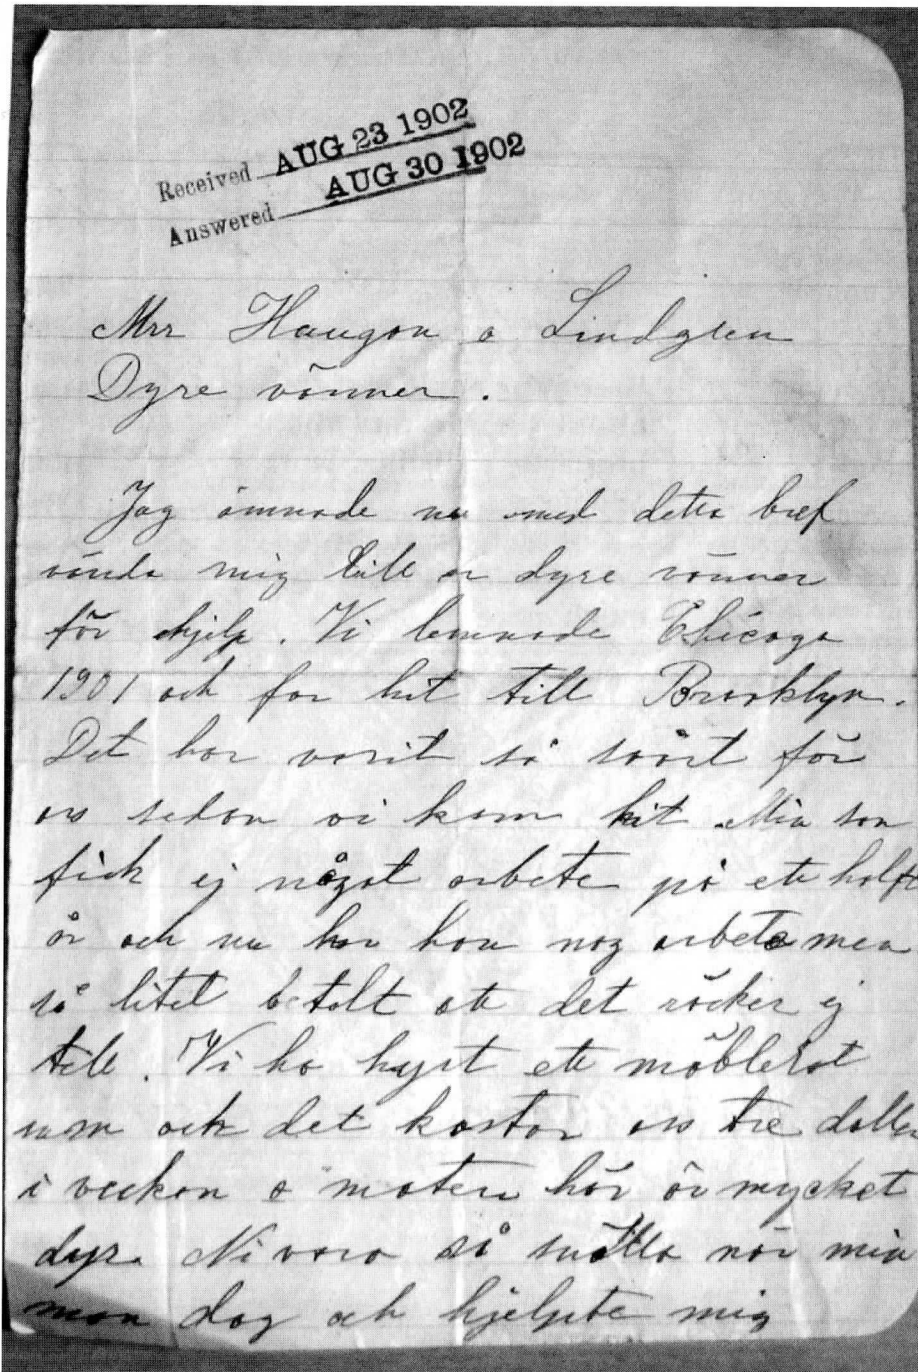 Received AUG 23 1902
Answered AUG 30 1902
Mrr Haugan o Lindgren
Dyre vänner.
Jag ämnade nu med detta bref
vända mig till er dyre vänner
för hjelp. Vi lemnade Chicago
1901 och for hit till Brooklyn.
Det har varit så svårt för
os sedan vi kom hit. Min son
fick ej något arbete på ett halft
år och nu har han nog arbete men
så litet betalt att det räcker ej
till. Vi ha hyrt ett möblerat
rum och det kostar oss tre dollar
i veckan o maten här är mycket
dyr. Ni voro så snälla när min
man dog och hjelpte mig